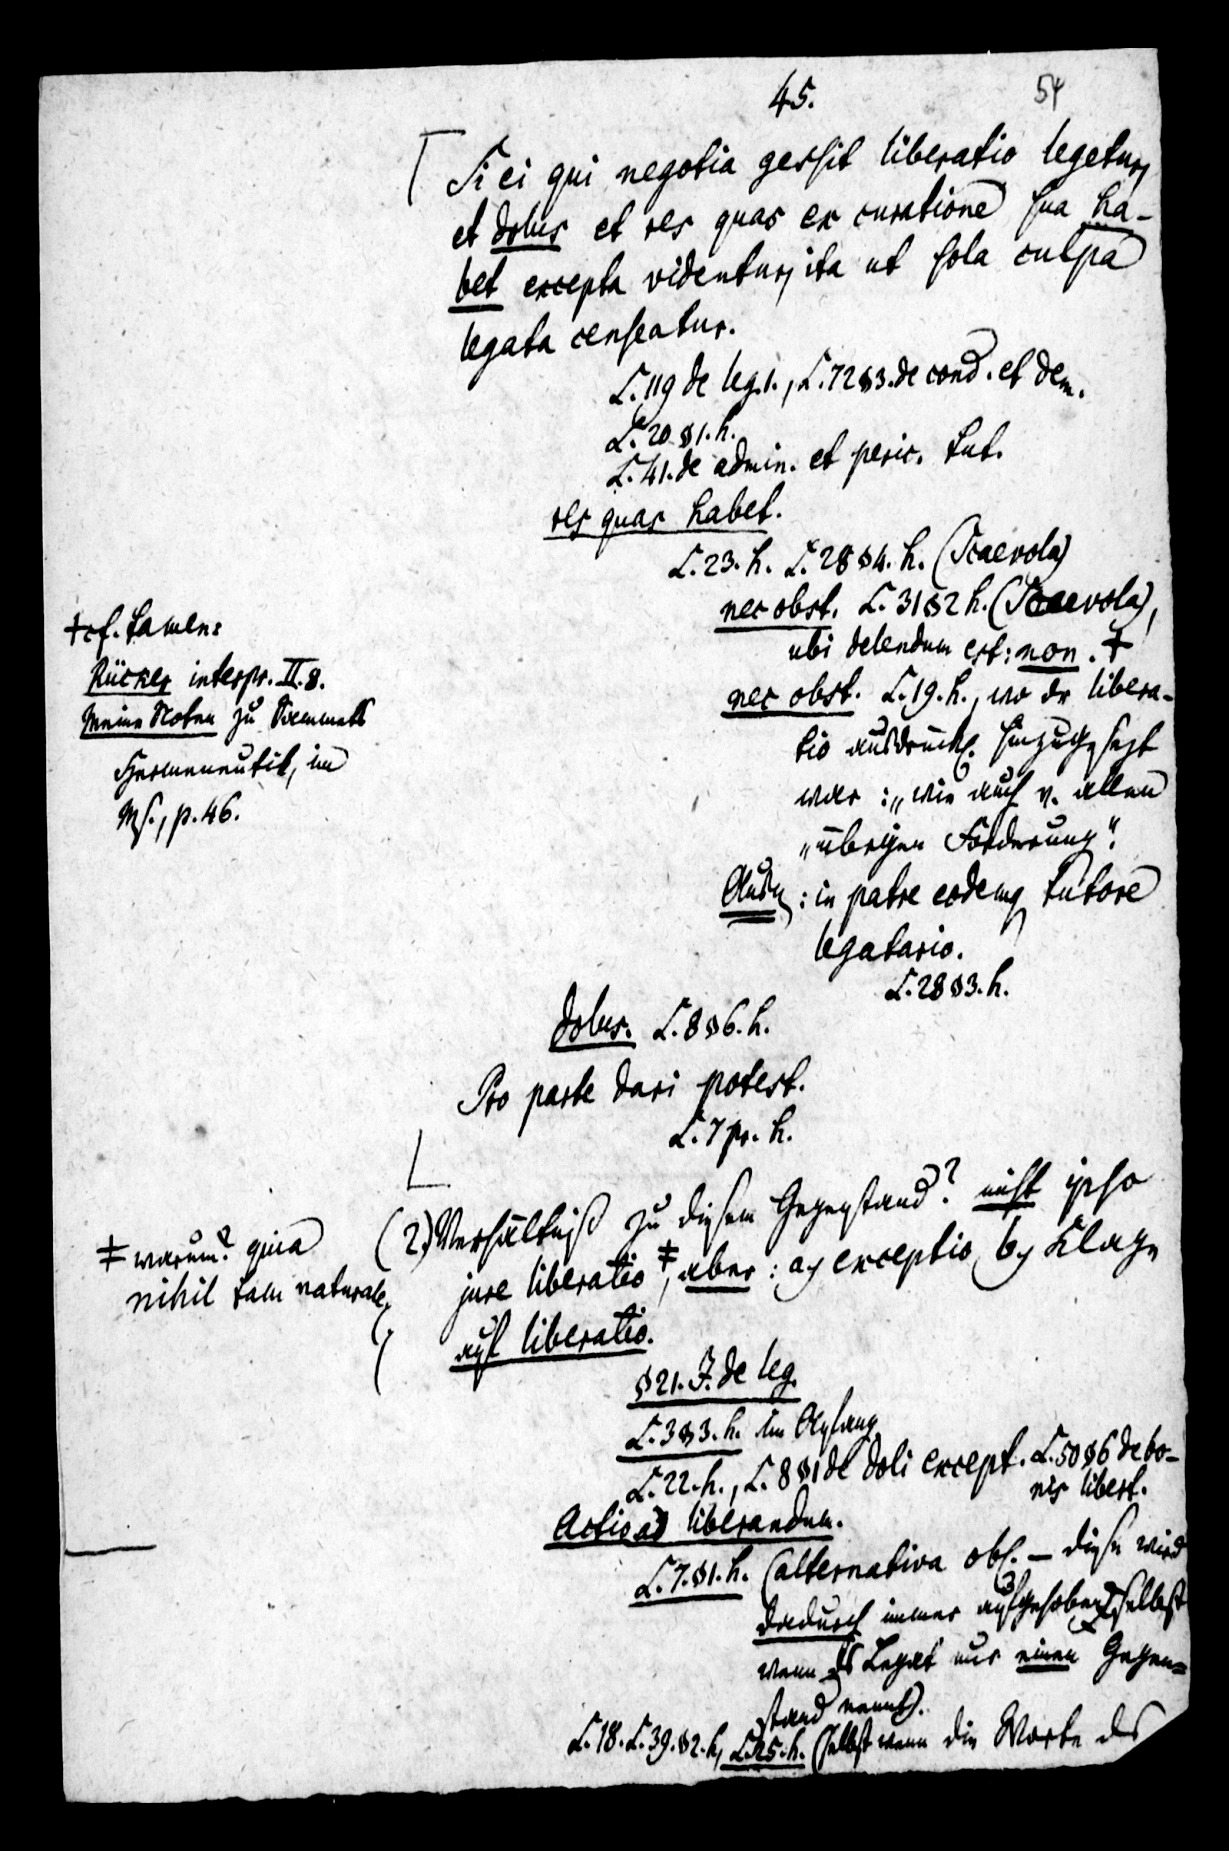 45.
54
Si ei qui negotia gessit liberatio legetur,
et dolus et res quas ex curatione sua ha-
bet excepta videntur, ita ut sola culpa
legata censeatur.
L. 119 de leg. 1., L. 72 § 3. de cond. et dem.
L. 20 § 1. h.
L. 41. de admin. et peric. tut.
res quas habet.
L. 23. h. L. 28 § 4. h. (Scaevola)
nec obst. L. 31 § 2 h. (Scaevola),
ubi delendum est: non. +
+ cf. tamen:
Rücker interpr. II. 8.
Meine Noten zu Sammets
Hermeneutik, im
Ms., p. 46.
nec obst. L. 19. h., wo der libera-
tio ausdrückl. hinzugesezt
war: „wie auch v. allen
„übrigen Forderung".
: in patre eodemq tutore
legatario.
L. 28 § 3. h.
dolus. L. 8 § 6. h.
Pro parte dari potest.
L. 7 pr. h.
(2.) Verhältniß zu diesem Gegenstand? nicht ipso
jure liberatio ‡, aber: a) exceptio b) Klage
auf liberatio.
‡ warum? quia
nihil tam naturale
§ 21. J. de leg.
L. 3 § 3. h. im Anfang
L. 22. h., L. 8 § 1 de doli except. L. 50 § 6 de bo-
nis libert.
Actio ad liberandum.
L. 7. § 1. h. (alternativa obl. – diese wird
dadurch immer aufgehoben, selbst
wenn das Legat nur einen Gegen-
stand nennt).
L. 18. L. 39. § 2. h, L. 25. h. (selbst wenn die Worte des